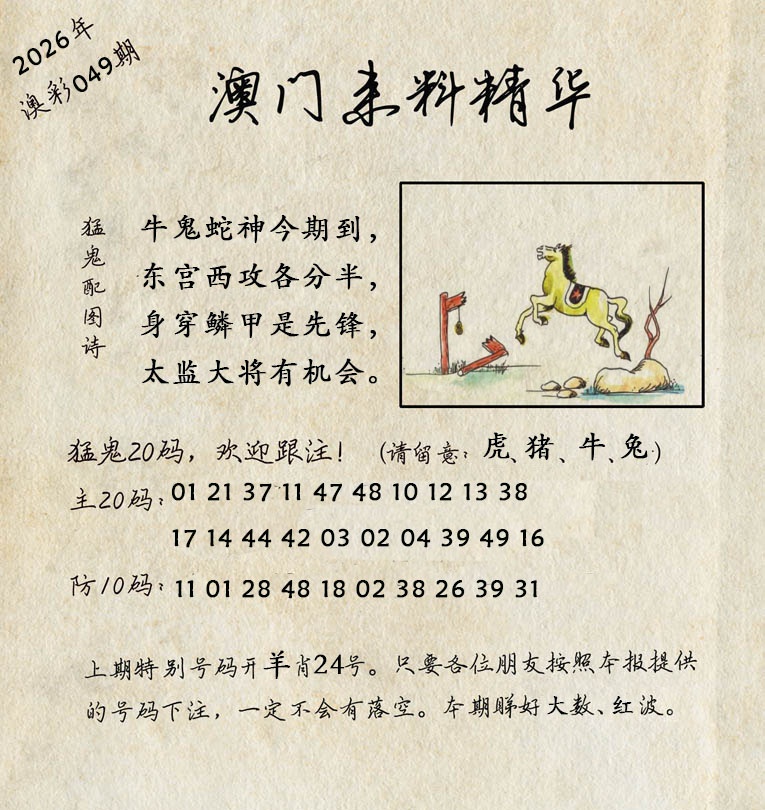 2026年
澳彩049期
澳门来料精华
猛鬼配图诗
牛鬼蛇神今期到，
东宫西攻各分半，
身穿鳞甲是先锋，
太监大将有机会。
猛鬼20码，欢迎跟注！（请留意：虎、猪、牛、兔）
主20码：01 21 37 11 47 48 10 12 13 38
17 14 44 42 03 02 04 39 49 16
防10码：11 01 28 48 18 02 38 26 39 31
上期特别号码开羊肖24号。只要各位朋友按照本报提供
的号码下注，一定不会有落空。本期睇好大数、红波。